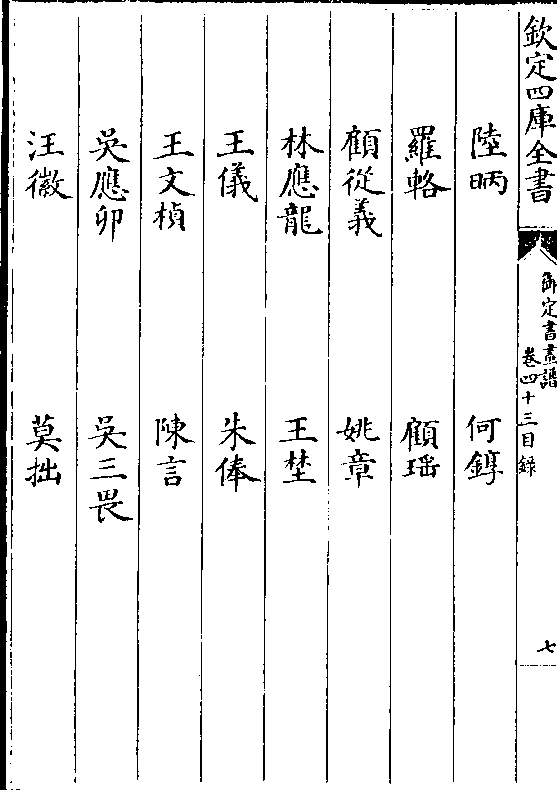 欽定四庫全書
御定書畫譜
卷四十三目録
七
陸昞 何錞
羅輅 顧瑶
顧從義 姚章
林應龍 王埜
王儀 朱俸
王文楨 陳言
吳應卯 吳三畏
汪徽 莫拙